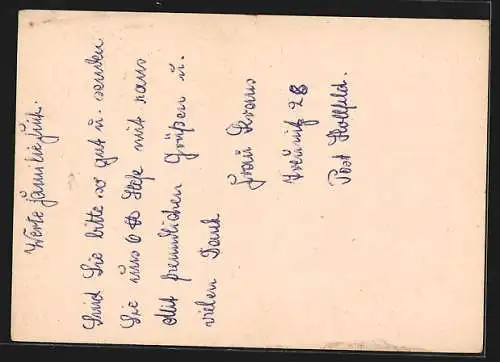 Werte Familie
Sind Sie bitte so gut u. senden
Sie uns 6 ℔ Hefe mit raus
Mit freundlichen Grüßen u.
vielen Dank
Frau Kraus
Treunitz 28
Post Hollfeld.